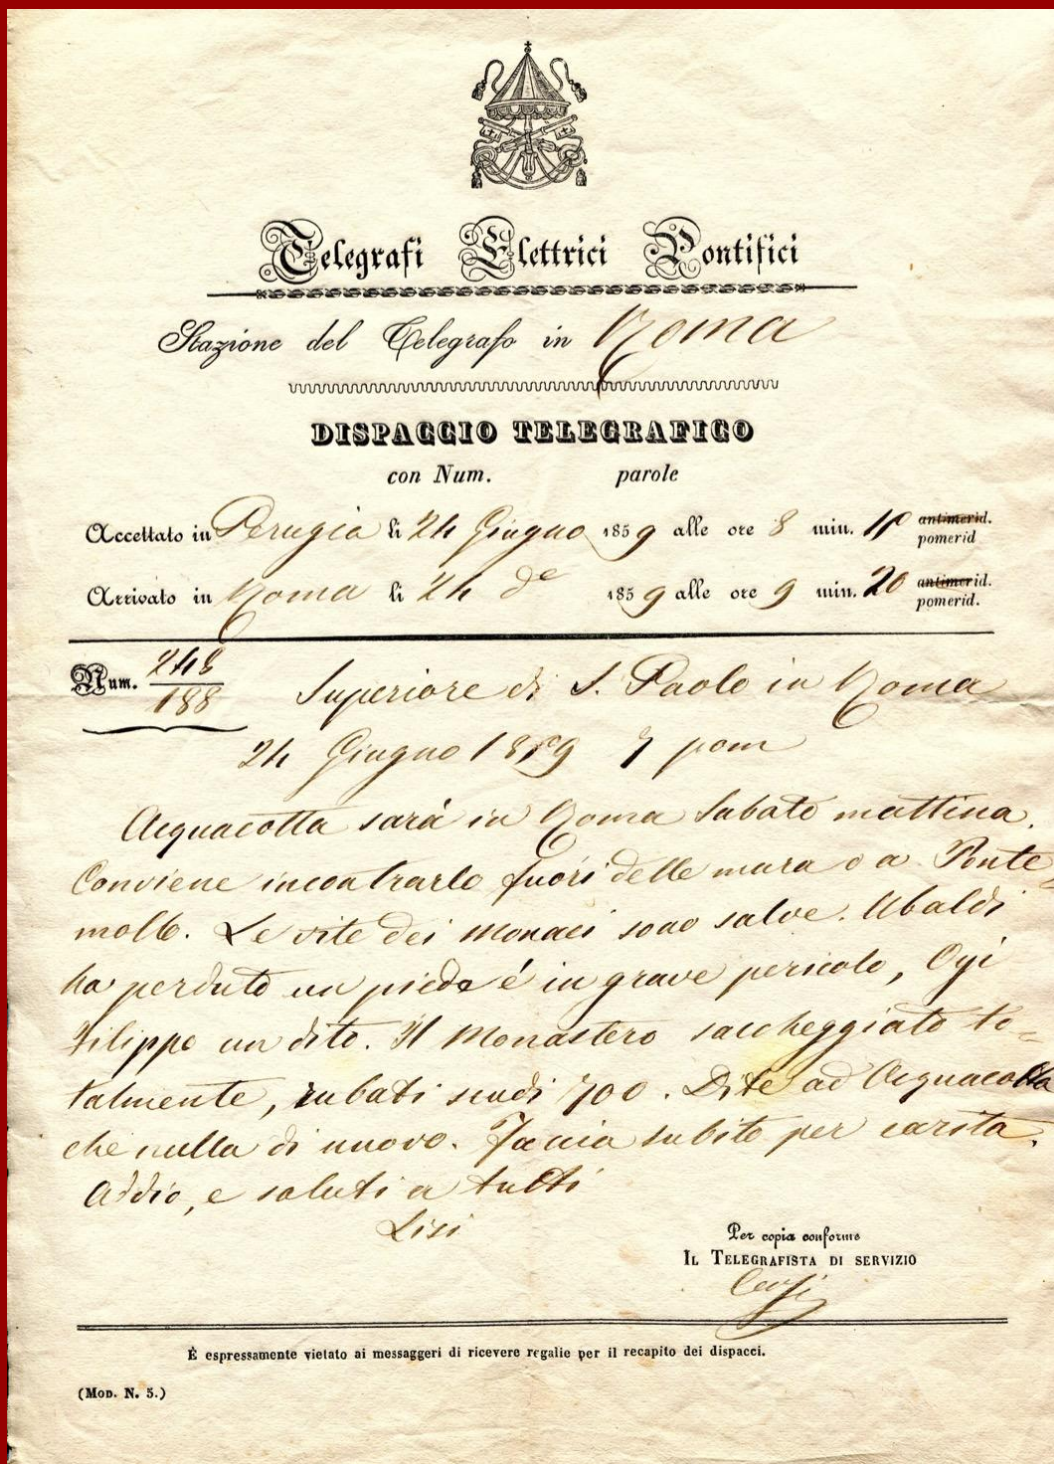 Telegrafi Elettrici Pontifici
Stazione del Telegrafo in Roma
DISPACCIO TELEGRAFICO
con Num. parole
Accettato in Perugia li 24 Giugno 1859 alle ore 8 min. antimerid. pomerid
Arrivato in Roma li 24 do 1859 alle ore 9 min. 20 antimerid. pomerid.
Num. 248
188
Superiore di S. Paolo in Roma
24 Giugno 1859 7 pom
Acquacotta sarà in Roma Sabato mattina.
Conviene incontrarlo fuori delle mura o a Ponte
molle. Le vite dei Monaci sono salve. Ubaldi
ha perduto un piede é in grave pericolo,
Filippo un dito. Il Monastero saccheggiato to=
talmente, rubati scudi 700. Dite ad Acquacotta
che nulla di nuovo. Faccia subito per carità.
Addio, e saluti a tutti
Lisi
Per copia conforme
IL TELEGRAFISTA DI SERVIZIO
È espressamente vietato ai messaggeri di ricevere regalie per il recapito dei dispacci.
(MOD. N. 5.)